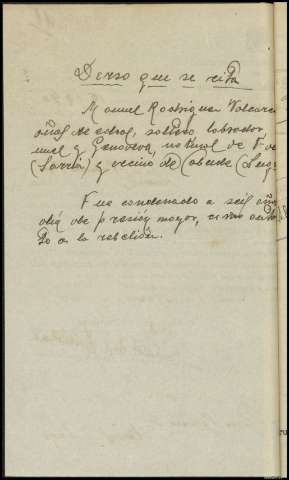 que se cita
Manuel Rodriguez Valcarce
años de edad, soltero, labrador,
nuel y Genoveva, natural de F
(Sarria) y vecino de (Lug
Fue condenado a seis años
día de prisión mayor,
a la rebelión.